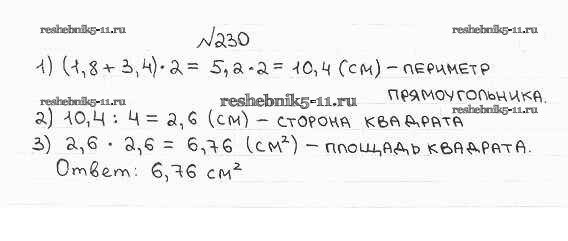 reshebnik5-11.ru №230 reshebnik5-11.ru
1) (1,8 + 3,4) · 2 = 5,2 · 2 = 10,4 (см) – ПЕРИМЕТР
ПРЯМОУГОЛЬНИКА.
reshebnik5-11.ru reshebnik5-11.ru reshebnik5-11.ru
2) 10,4 : 4 = 2,6 (см) – СТОРОНА КВАДРАТА
3) 2,6 · 2,6 = 6,76 (см²) – ПЛОЩАДЬ КВАДРАТА.
Ответ: 6,76 см²